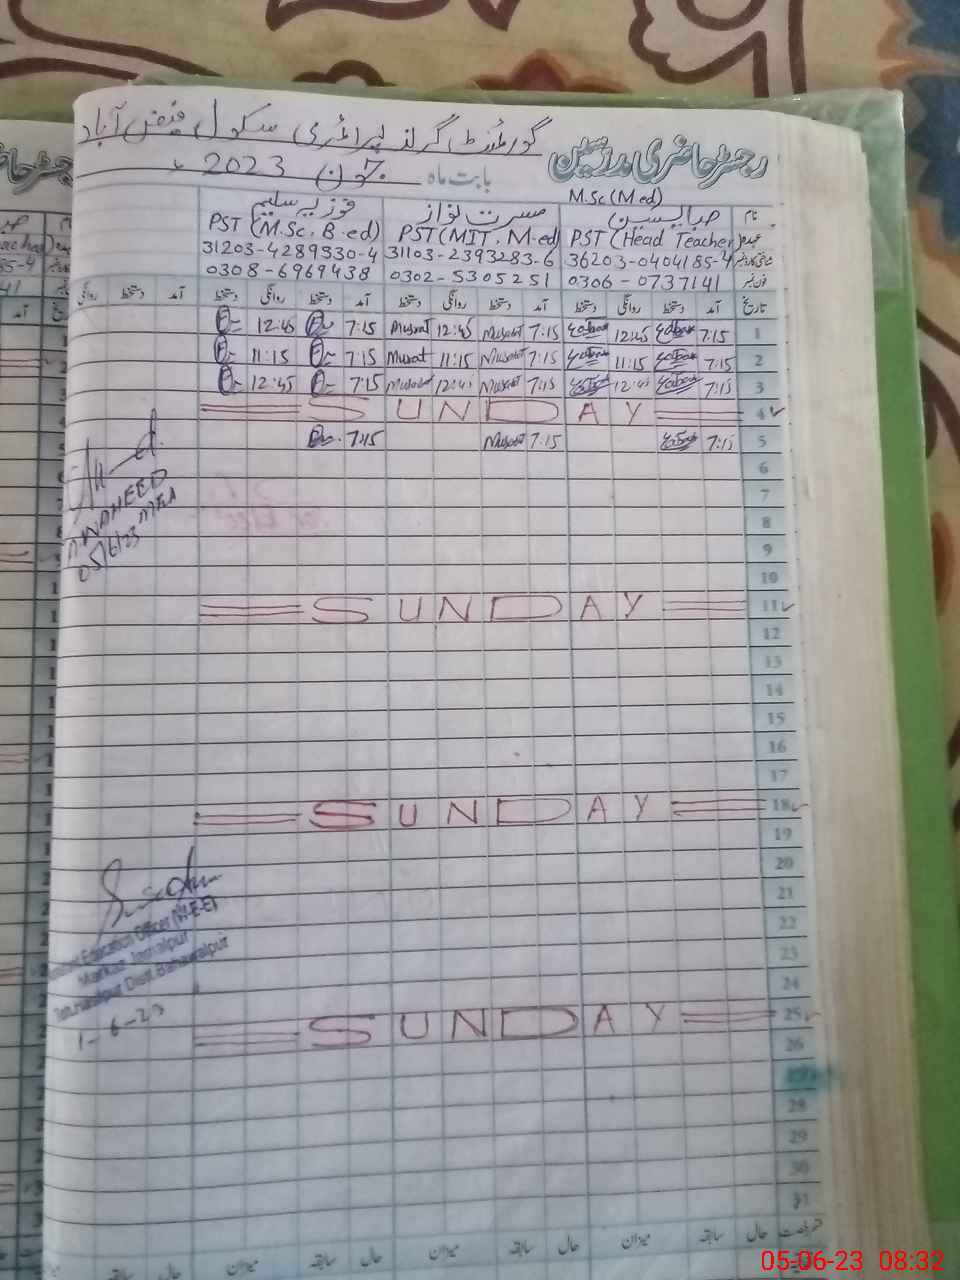 گورنمنٹ گرلز پرائمری سکول فیض آباد
رجسٹر حاضری مدرسین
بابت ماہ جون 2023ء
M.Sc (M ed)
نام صبا یسین مسرت نواز فوزیہ سلیم
عہدہ PST (Head Teacher) PST (MIT, M-ed) PST (M.Sc, B.ed)
36203-0404185-4 31103-2393283-6 31203-4289330-4
فون نمبر 0306-0737141 0302-5305251 0308-6969438
تاریخ آمد دستخط روانگی دستخط آمد دستخط روانگی دستخط آمد دستخط روانگی دستخط آمد دستخط روانگی
1 7:15 12:45 7:15 Musrat 12:45 Musrat 7:15 12:45
2 7:15 11:15 7:15 Musrat 11:15 Musrat 7:15 11:15
3 7:15 12:45 7:15 Musrat 12:45 Musrat 7:15 12:45
SUNDAY 4
5 7:15 7:15 Musrat 7:15
6
7
8
9
10
SUNDAY 11
12
13
14
15
16
17
SUNDAY 18
19
20
21
22
23
24
SUNDAY 25
26
27
28
29
30
31
حال سابقہ میزان حال سابقہ میزان حال سابقہ میزان حال سابقہ
WAHEED
MEA
05/6/23
Education Officer (W-E-E)
Markaz Jamalpur
Dist. Bahawalpur
1-6-23
05-06-23 08:32